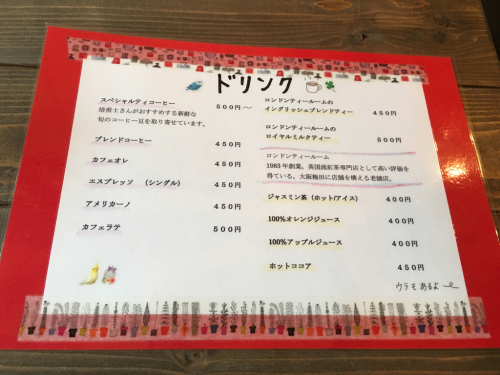 ドリンク
スペシャルティコーヒー 500円～
焙煎士さんがおすすめする新鮮な
旬のコーヒー豆を取り寄せています。
ブレンドコーヒー 450円
カフェオレ 450円
エスプレッソ （シングル） 450円
アメリカーノ 450円
カフェラテ 500円
ロンドンティールームの
イングリッシュブレンドティー 450円
ロンドンティールームの
ロイヤルミルクティー 500円
ロンドンティールーム
1983年創業。英国流紅茶専門店として高い評価を
得ている。大阪梅田に店舗を構える老舗店。
ジャスミン茶（ホット/アイス） 400円
100%オレンジジュース 400円
100%アップルジュース 400円
ホットココア 450円
ウラもあるよ